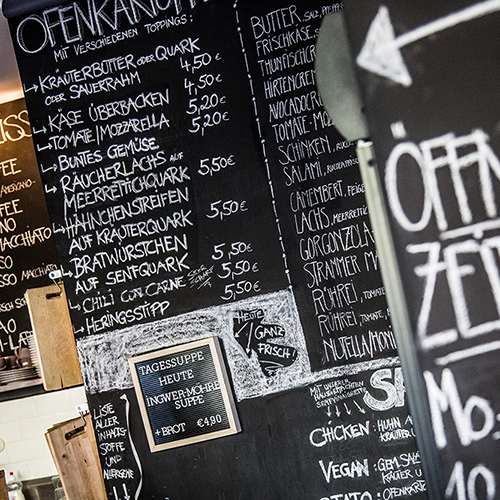 OFENKARTOFF
MIT VERSCHIEDENEN TOPPINGS:
KRÄUTERBUTTER ODER QUARK 4,50 €
ODER SAUERRAHM 4,50 €
KÄSE ÜBERBACKEN 5,20 €
TOMATE/MOZZARELLA 5,20 €
BUNTES GEMÜSE
RÄUCHERLACHS AUF
MEERRETTICHQUARK 5,50 €
HÄHNCHENSTREIFEN
AUF KRÄUTERQUARK 5,50 €
BRATWÜRSTCHEN
AUF SENFQUARK 5,50 €
CHILI CON CARNE 5,50 €
HERINGSSTIPP 5,50 €
HEUTE
GANZ
FRISCH
TAGESSUPPE
HEUTE
INGWER-MÖHRE
SUPPE
+ BROT €4,90
LISTE
ALLER
INHALTS-
STOFFE
UND
ALLERGENE
BUTTER, SALZ,
FRISCHKÄSE
THUNFISCHC
HIRTENCREM
AVOCADOCR
TOMATE-MO
SCHINKEN,
SALAMI,
CAMEMBERT, FEIGE
LACHS, MEERRETTIC
GORGONZOLA
STRAMMER MA
RÜHREI, TOMATE
RÜHREI, TOMATE
NUTELLA/HONI
CHICKEN: HUHN
KRÄUTER
VEGAN: GEM. SALZ
KRÄUTER U
OFENKARTO
MACCHIATO
MACCHIATO
ÖFFN
ZEI
MO.
10